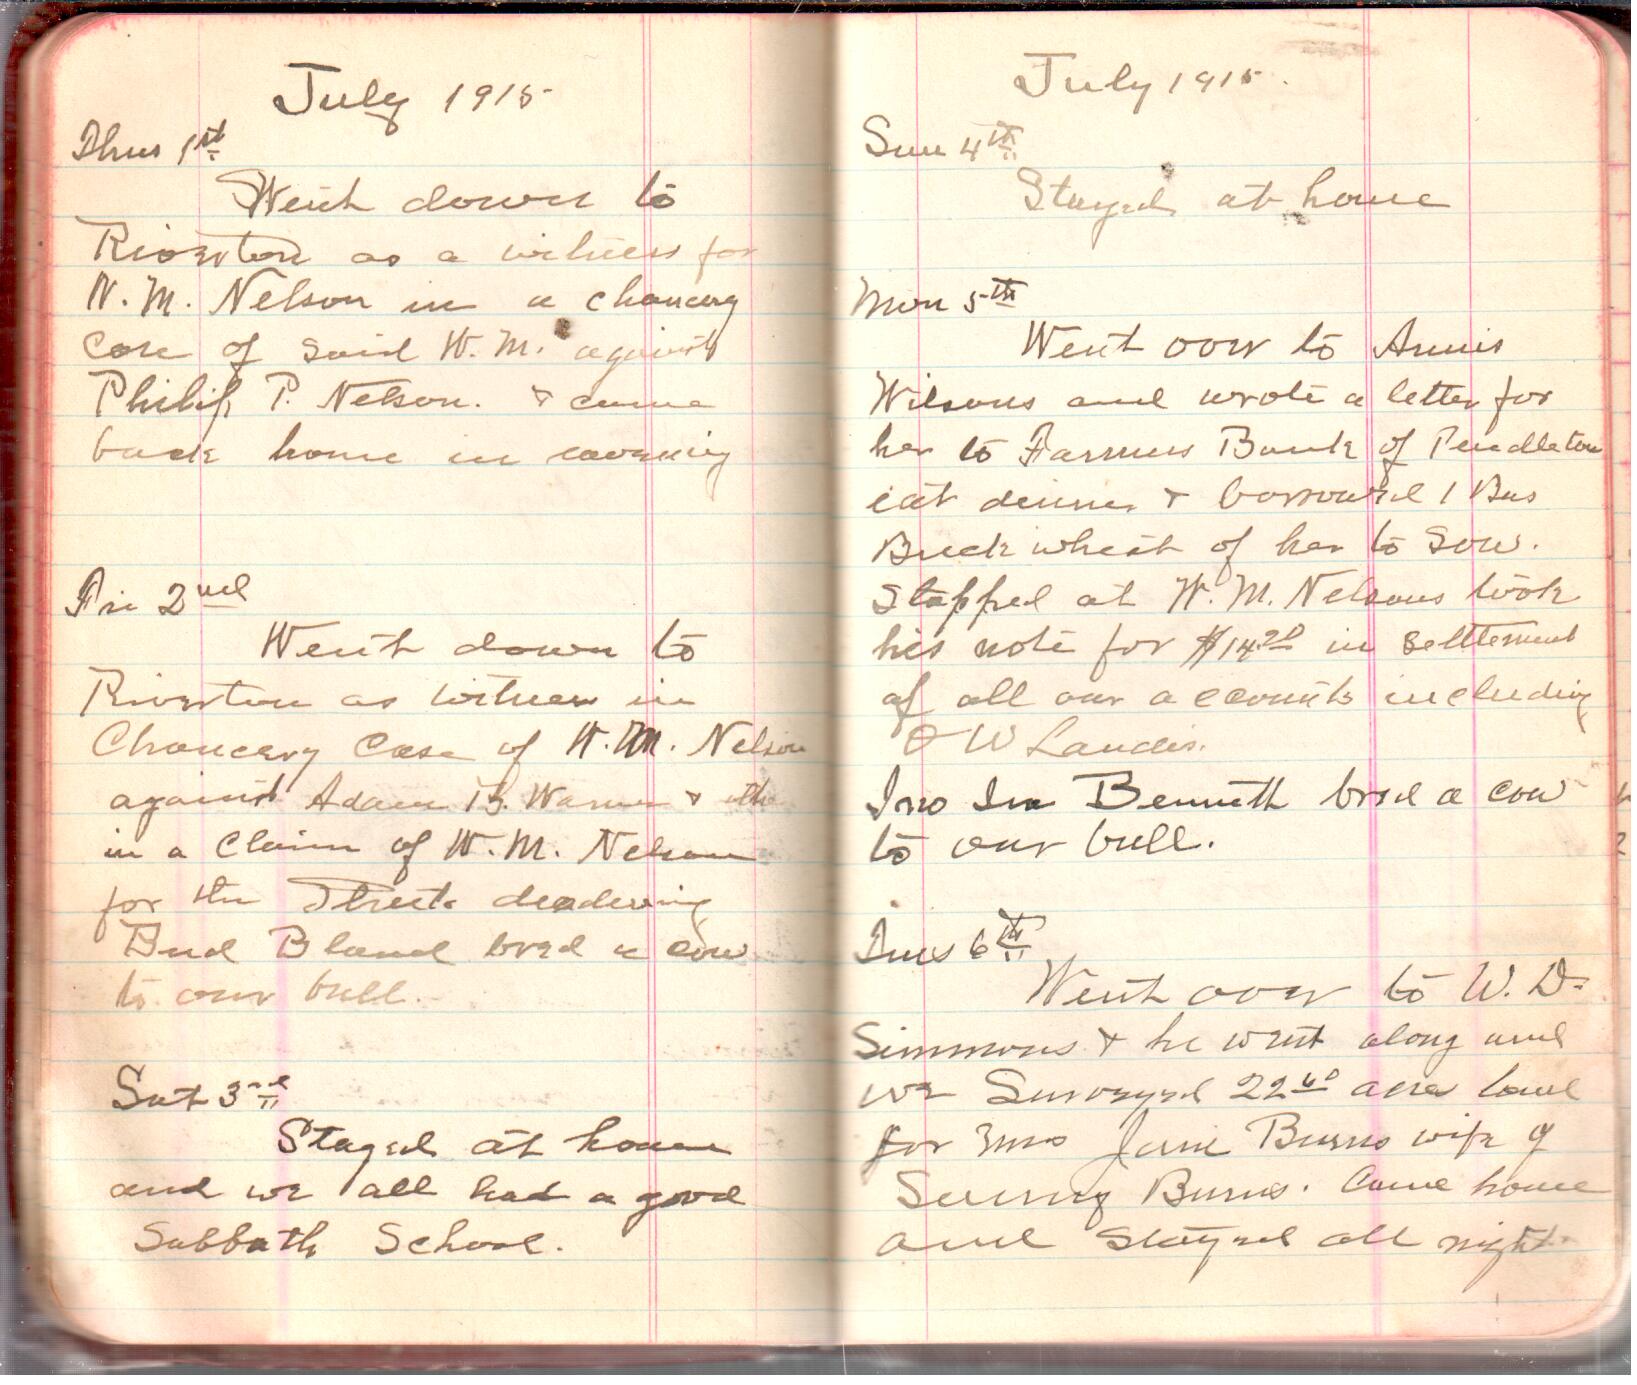 July 1915
Thus 1st
Went down to
Riverton as a witness for
W. M. Nelson in a chancery
Case of said W. M. against
Philip P. Nelson. & came
back home in evening
Fri 2nd
Went down to
Riverton as witness in
Chancery Case of W. M. Nelson
against Adam B. Warner & othe
in a Claim of W. M. Nelson
for the Street deadening
Bud Bland bred a cow
to our bull.
Sat 3rd
Stayed at home
and we all had a good
Sabbath School.
July 1915.
Sun 4th
Stayed at home
Mon 5th
Went over to Annis
Wilsons and wrote a letter for
her to Farmers Bank of Pendleton
eat dinner & borrowed 1 Bus
Buckwheat of her to sow.
Stopped at W. M. Nelsons took
his note for $14.20 in settlement
of all our accounts including
O W Landis.
Jno Ira Bennett bred a cow
to our bull.
Tues 6th
Went over to W. D.
Simmons & he went along and
we Surveyed 22 60 acres land
for Mrs Jane Burns wife of
Senny Burns. Came home
and stayed all night